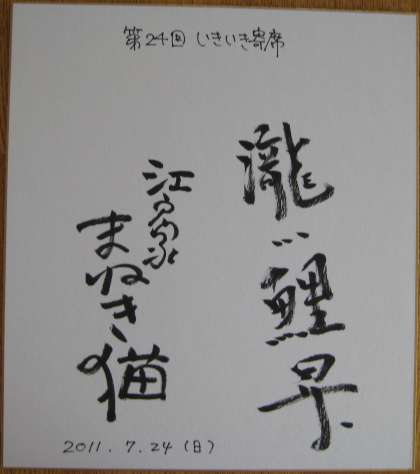 第24回 いきいき寄席
瀧川鯉昇
江戸家
まねき猫
2011.7.24(日)